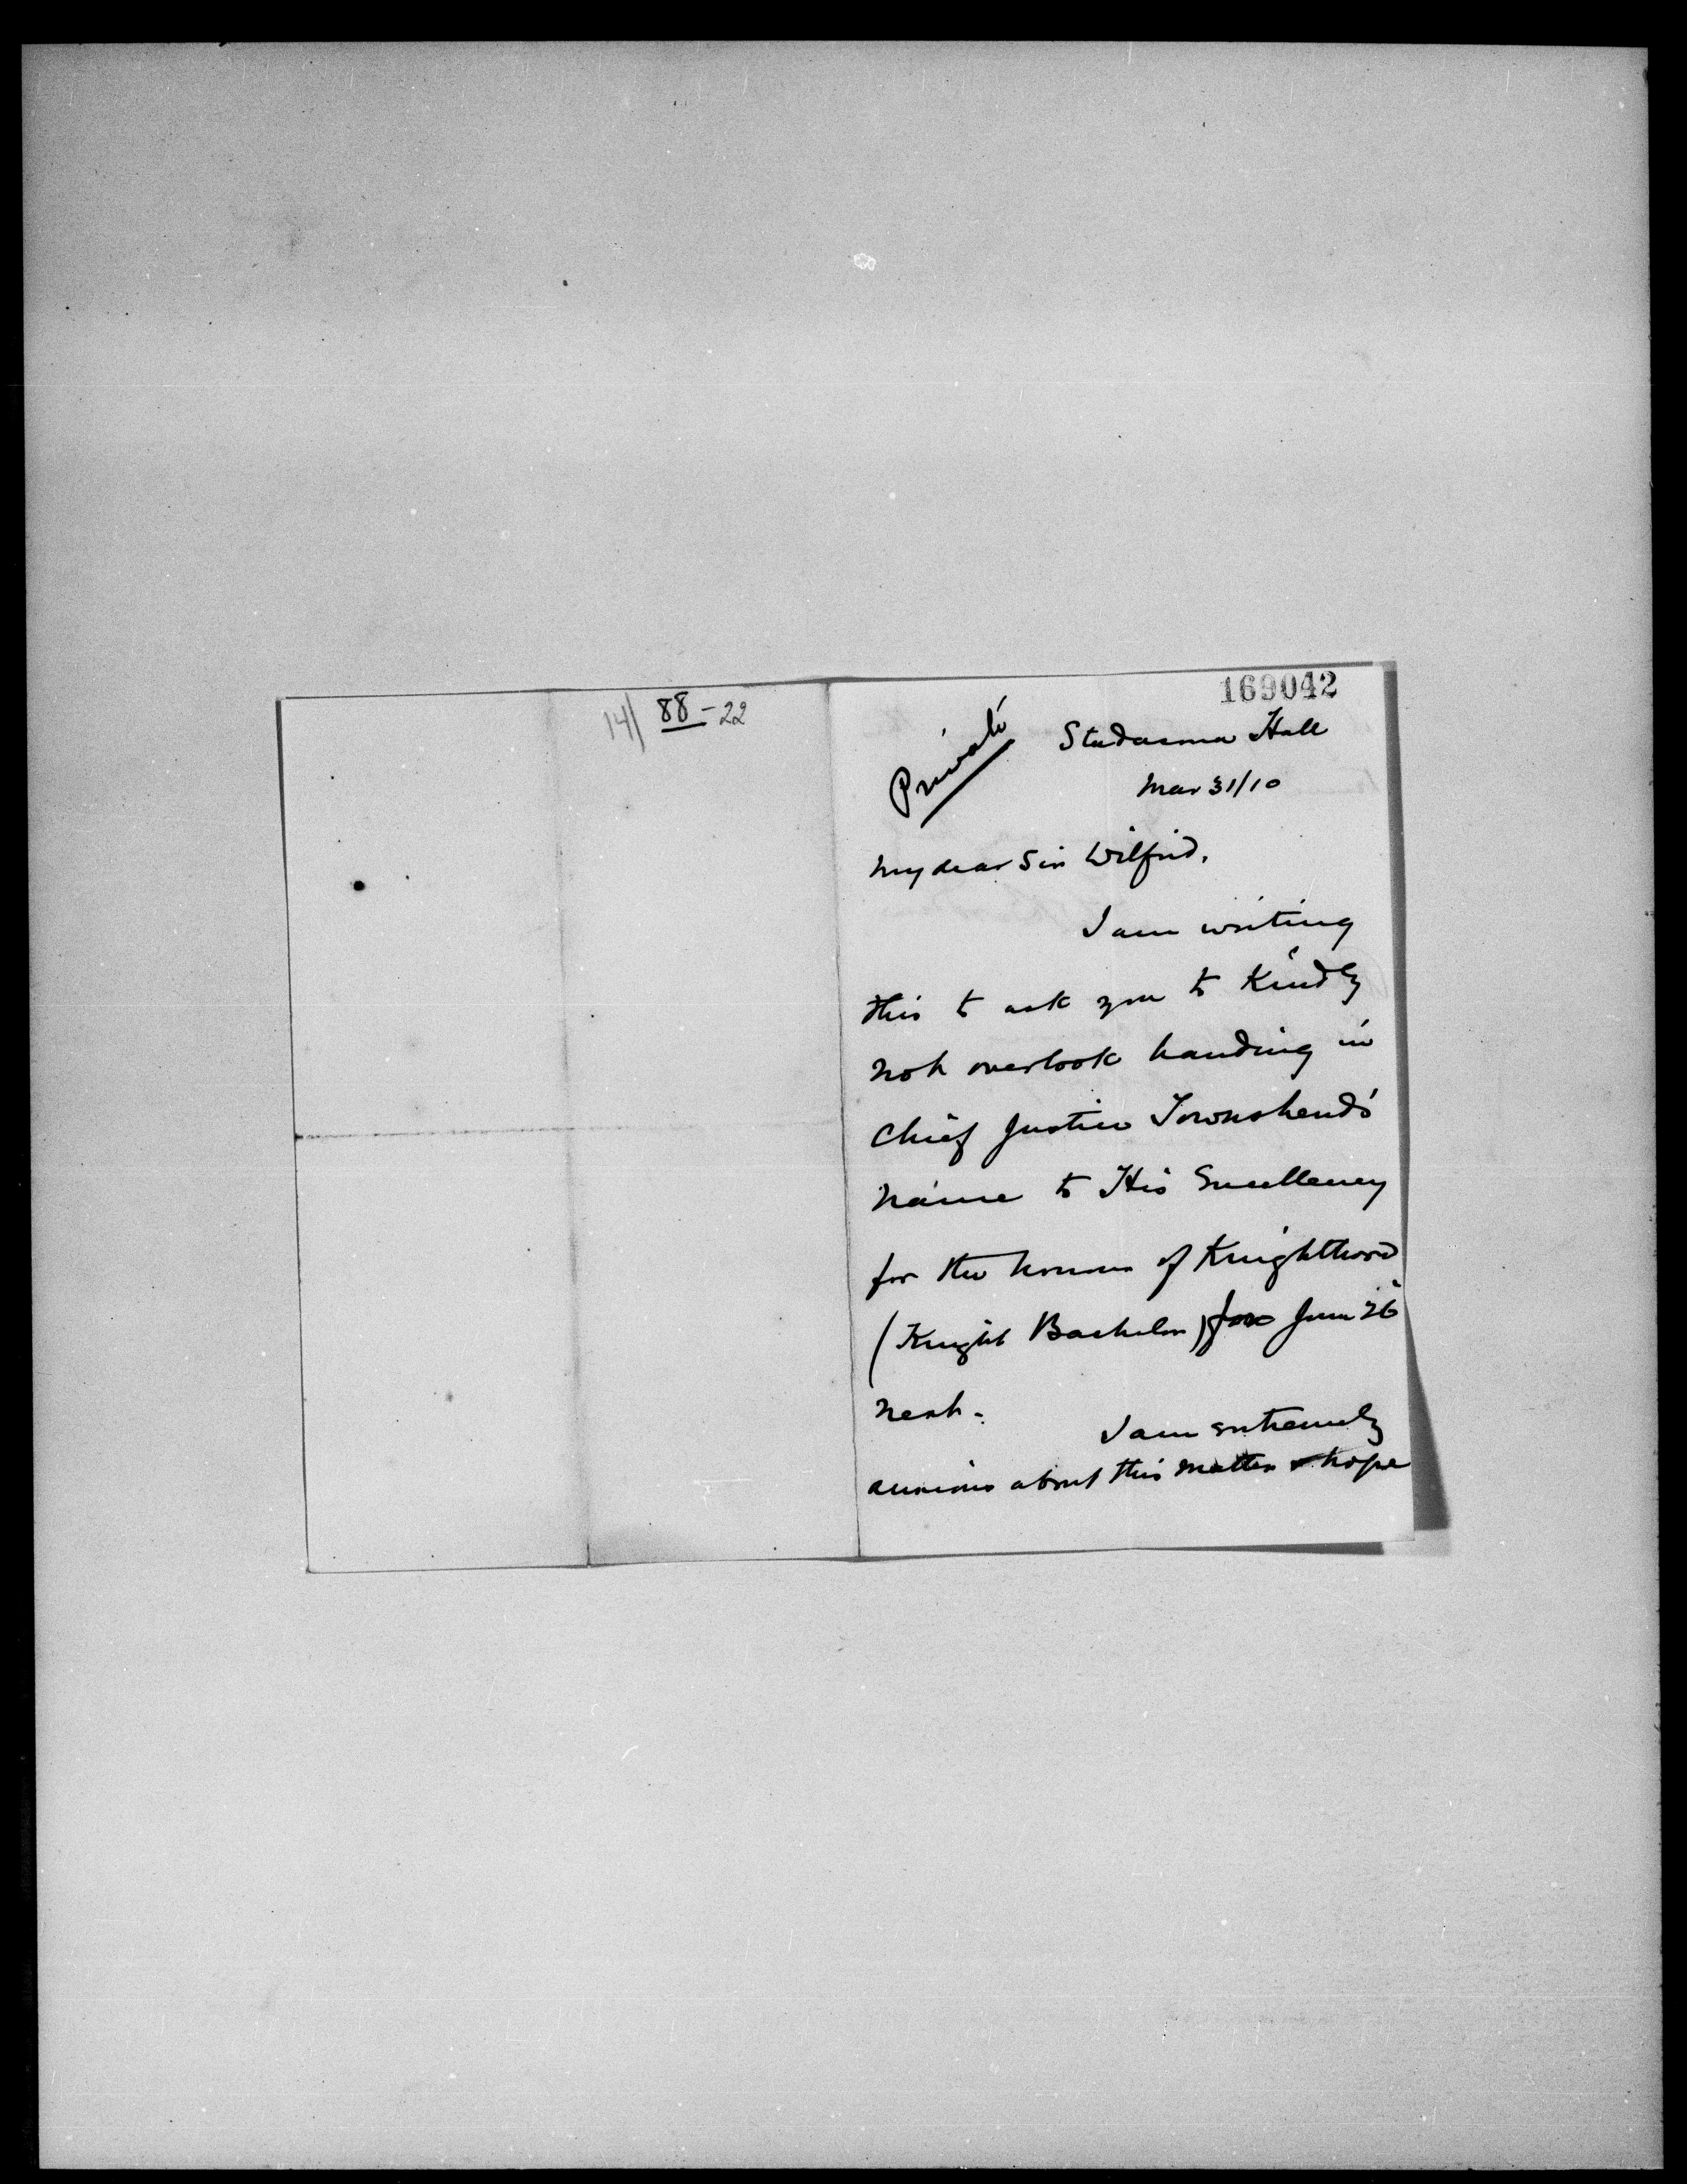 14) 88-22
169042
Private
Studacona Hall
Mar 31/10
My dear Sir Wilfrid,
I am writing
this to ask you to Kindly
not overlook handing in
Chief Justice Townshend's
name to His Excellency
for the honour of Knighthood
(Knight Bachelor) for June 26
next.
I am extremely
anxious about this matter & hope